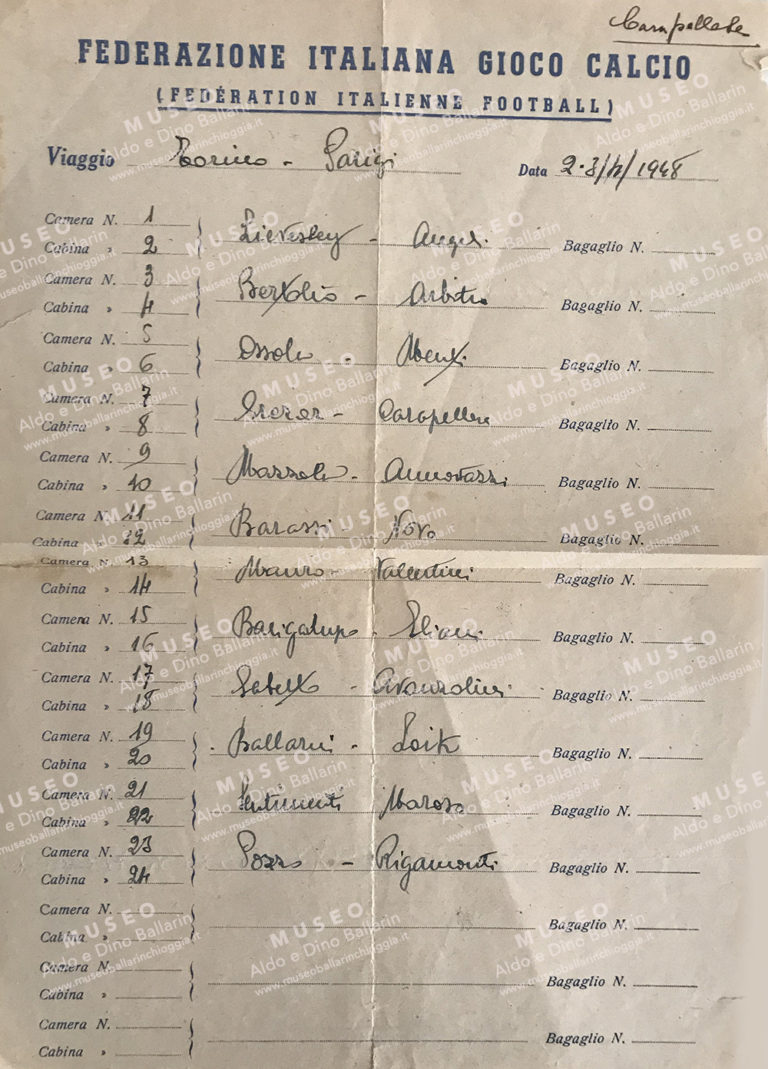 Campellese
FEDERAZIONE ITALIANA GIOCO CALCIO
(FEDÉRATION ITALIENNE FOOTBALL)
Viaggio Torino - Parigi Data 2-3/4/1948
Camera N. 1
Cabina » 2 Lievesley - Angeli Bagaglio N.
Camera N. 3
Cabina » 4 Bertolio - Arbitro Bagaglio N.
Camera N. 5
Cabina » 6 Ossola - Menti Bagaglio N.
Camera N. 7
Cabina » 8 Grezar - Carapellese Bagaglio N.
Camera N. 9
Cabina » 10 Mazzola - Annovazzi Bagaglio N.
Camera N. 11
Cabina » 12 Barassi Novo Bagaglio N.
Camera N. 13
Cabina » 14 Mauro - Valentini Bagaglio N.
Camera N. 15
Cabina » 16 Bacigalupo - Eliani Bagaglio N.
Camera N. 17
Cabina » 18 Gabetto - Avanzolini Bagaglio N.
Camera N. 19
Cabina » 20 Ballarin - Loik Bagaglio N.
Camera N. 21
Cabina » 22 Sentimenti Maroso Bagaglio N.
Camera N. 23
Cabina » 24 Pozzo - Rigamonti Bagaglio N.
Camera N.
Cabina » Bagaglio N.
Camera N.
Cabina » Bagaglio N.
Camera N.
Cabina » Bagaglio N.
MUSEO
Aldo e Dino Ballarin
www.museoballarinchioggia.it